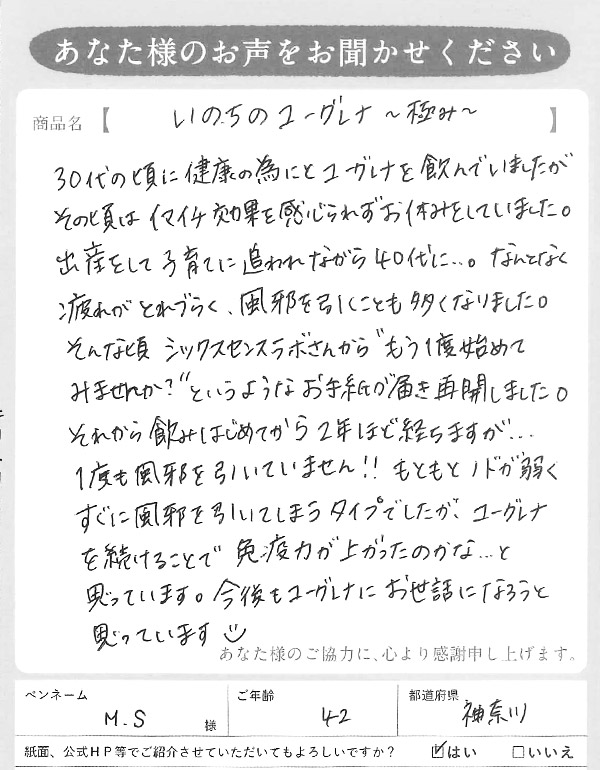 あなた様のお声をお聞かせください
商品名【 いのちのユーグレナ〜極み〜 】
30代の頃に健康の為にとユーグレナを飲んでいましたが
その頃はイマイチ効果を感じられずお休みをしていました。
出産をして子育てに追われながら40代に…。なんとなく
疲れがとれづらく、風邪を引くことも多くなりました。
そんな頃シックスセンスラボさんから"もう1度始めて
みませんか?"というようなお手紙が届き再開しました。
それから飲みはじめてから2年ほど経ちますが…
1度も風邪を引いていません!! もともとノドが弱く
すぐに風邪を引いてしまうタイプでしたが、ユーグレナ
を続けることで免疫力が上がったのかな…と
思っています。今後もユーグレナにお世話になろうと
思っています
あなた様のご協力に、心より感謝申し上げます。
ペンネーム M.S 様 ご年齢 42 都道府県 神奈川
紙面、公式HP等でご紹介させていただいてもよろしいですか? ☑はい □いいえ